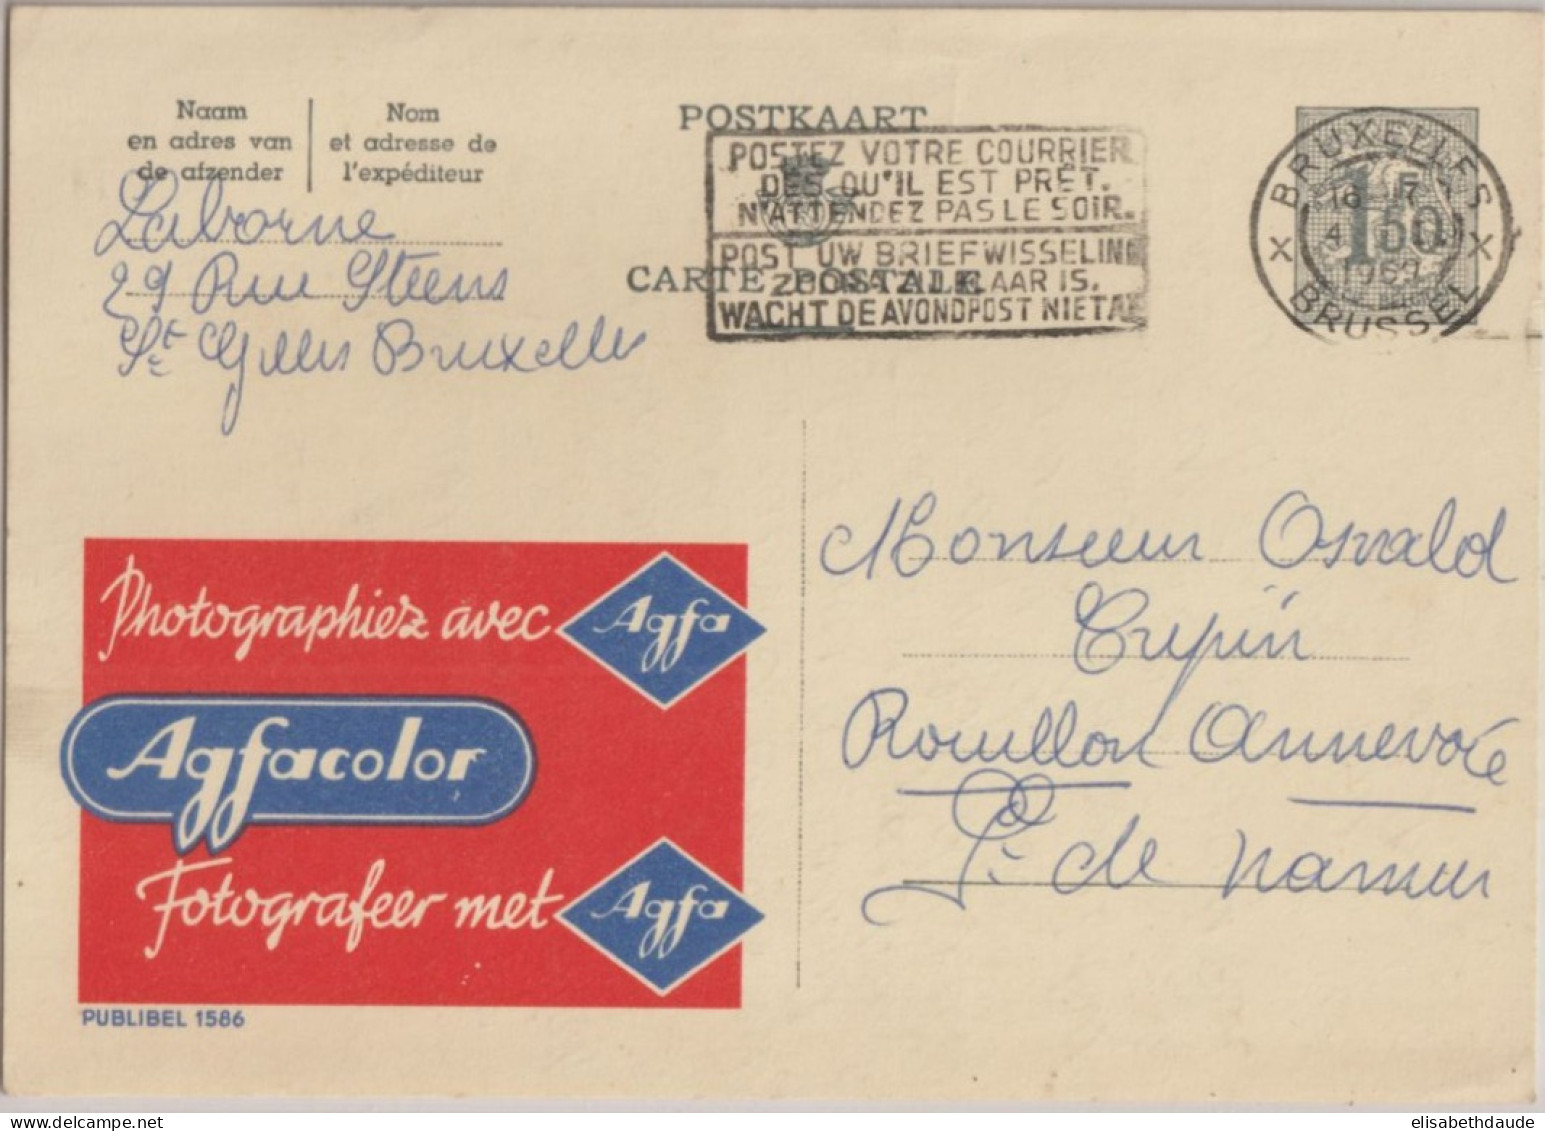 Naam
en adres van
de afzender
Nom
et adresse de
l'expéditeur
Laborne
29 Rue Steens
St Gilles Bruxelles
POSTKAART
CARTE POSTALE
POSTEZ VOTRE COURRIER
DÈS QU'IL EST PRÊT.
N'ATTENDEZ PAS LE SOIR.
POST UW BRIEFWISSELING
ZODRA ZIJ KLAAR IS.
WACHT DE AVONDPOST NIET A
BRUXELLES
BRUSSEL
1F50
Photographiez avec Agfa
Agfacolor
Fotografeer met Agfa
PUBLIBEL 1586
Monsieur Osvald
Crépin
Rouillon Annevoie
P. de Namur
elisabethdaude